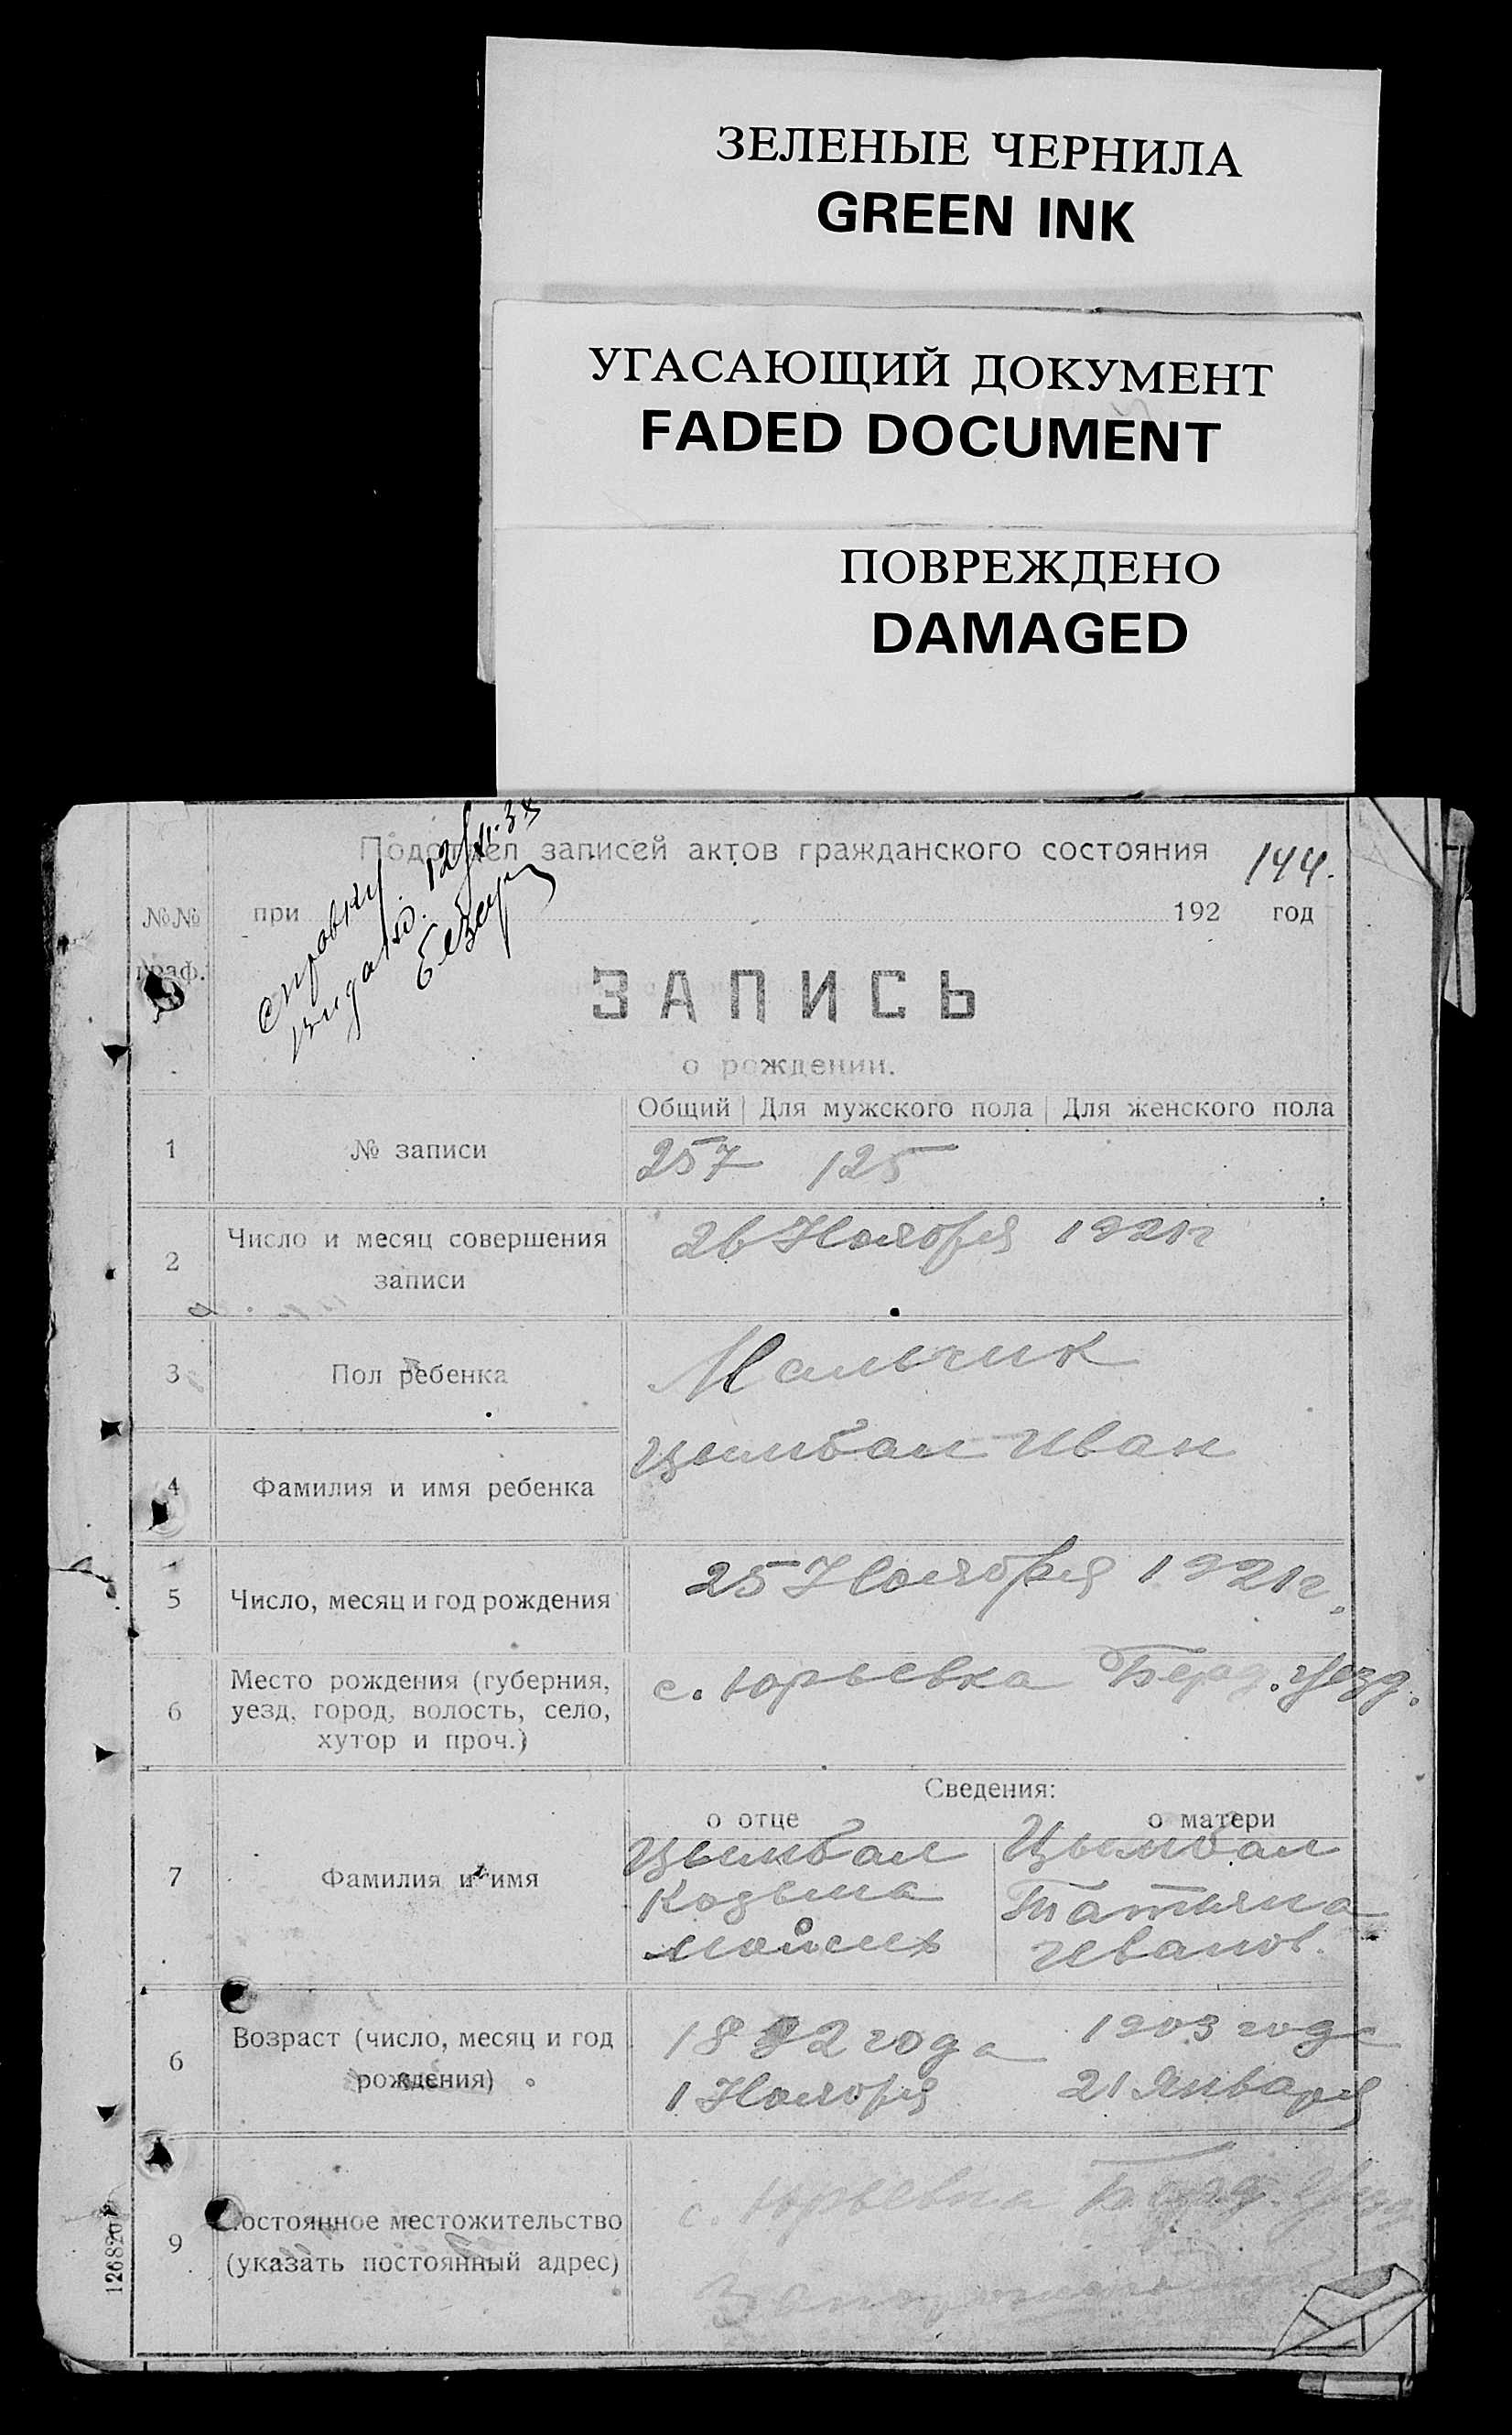 ЗЕЛЕНЫЕ ЧЕРНИЛА
GREEN INK
УГАСАЮЩИЙ ДОКУМЕНТ
FADED DOCUMENT
ПОВРЕЖДЕНО
DAMAGED
Подотдел записей актов гражданского состояния
144.
№№ граф.
при 192 год
справку
видано. 12/II.34
ЗАПИСЬ
о рождении.
Общий Для мужского пола Для женского пола
1 № записи 257 125
2 Число и месяц совершения записи 26 Ноября 1921г
3 Пол ребенка Мальчик
4 Фамилия и имя ребенка Цымбал Иван
5 Число, месяц и год рождения 25 Ноября 1921г.
6 Место рождения (губерния, уезд, город, волость, село, хутор и проч.) с. Юрьевка Берд. Уезд.
Сведения:
о отце о матери
7 Фамилия и имя
Цымбал Цымбал
Козьма Татьяна
Иванов.
6 Возраст (число, месяц и год рождения)
года 1903 года
1 Ноября 21 Января
9 Постоянное местожительство (указать постоянный адрес)
с. Юрьевка Берд. Уезд
126820